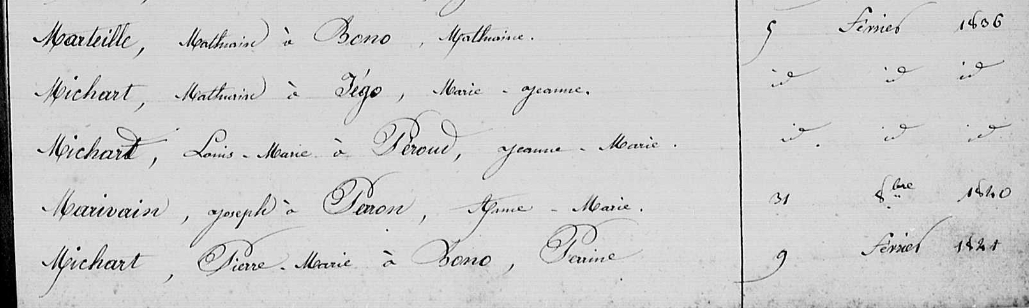 Marteille, Mathurin à Bono, Mathurine. 5 Février 1836
Michart, Mathurin à Jégo, Marie-Jeanne. id id id
Michard, Louis-Marie à Péroud, Jeanne-Marie. id. id id
Marivain, Joseph à Perron, Anne-Marie. 31 8bre 1840
Michart, Pierre-Marie à Bono, Perrine 9 Février 1841